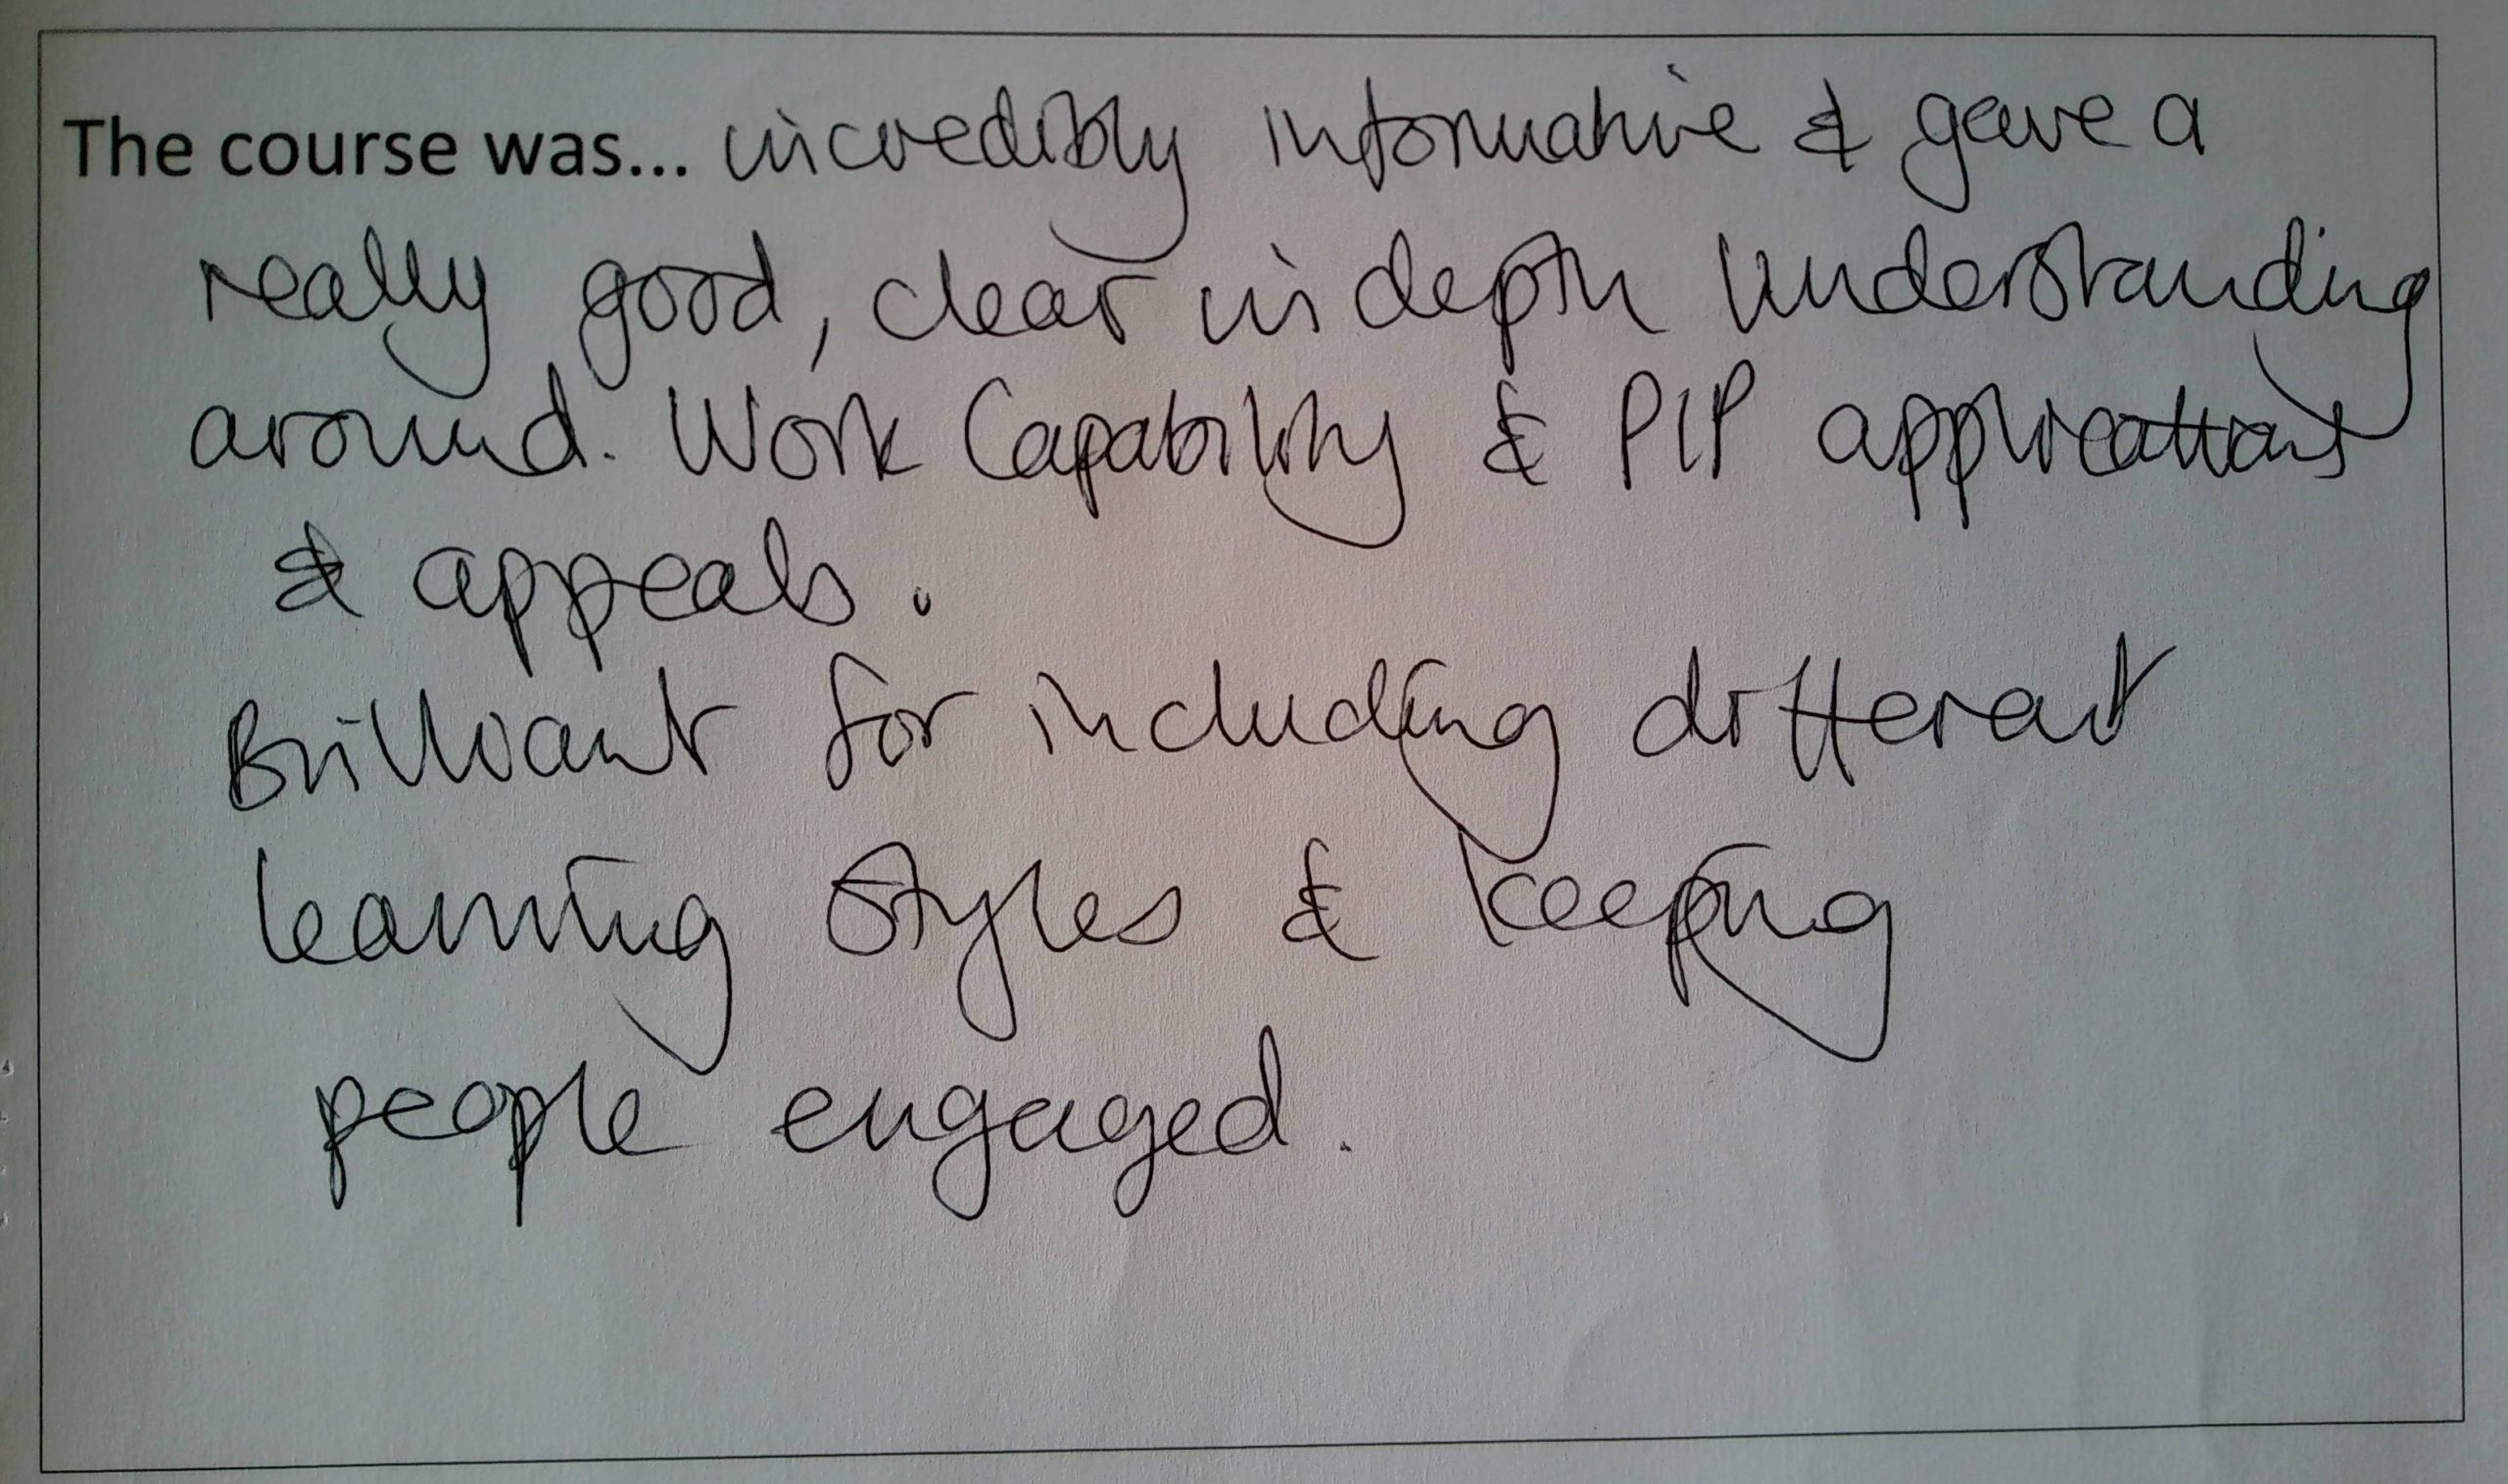 The course was... incredibly informative & gave a
really good, clear in depth understanding
around. Work Capability & PIP applications
& appeals.
Brilliant for including different
learning styles & keeping
people engaged.